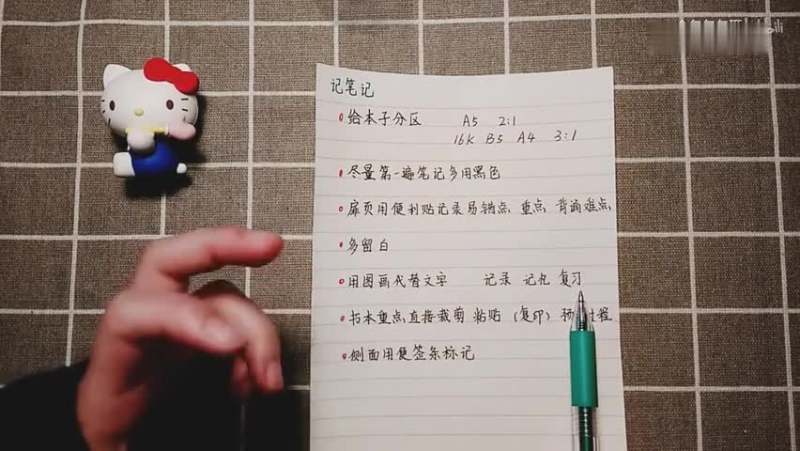 记笔记
给本子分区 A5 2:1
16K B5 A4 3:1
尽量第一遍笔记多用黑色
扉页用便利贴记录易错点 重点 背诵难点
多留白
用图画代替文字 记录 记忆 复习
书本重点直接裁剪 粘贴 (复印) 程
侧面用便签条标记